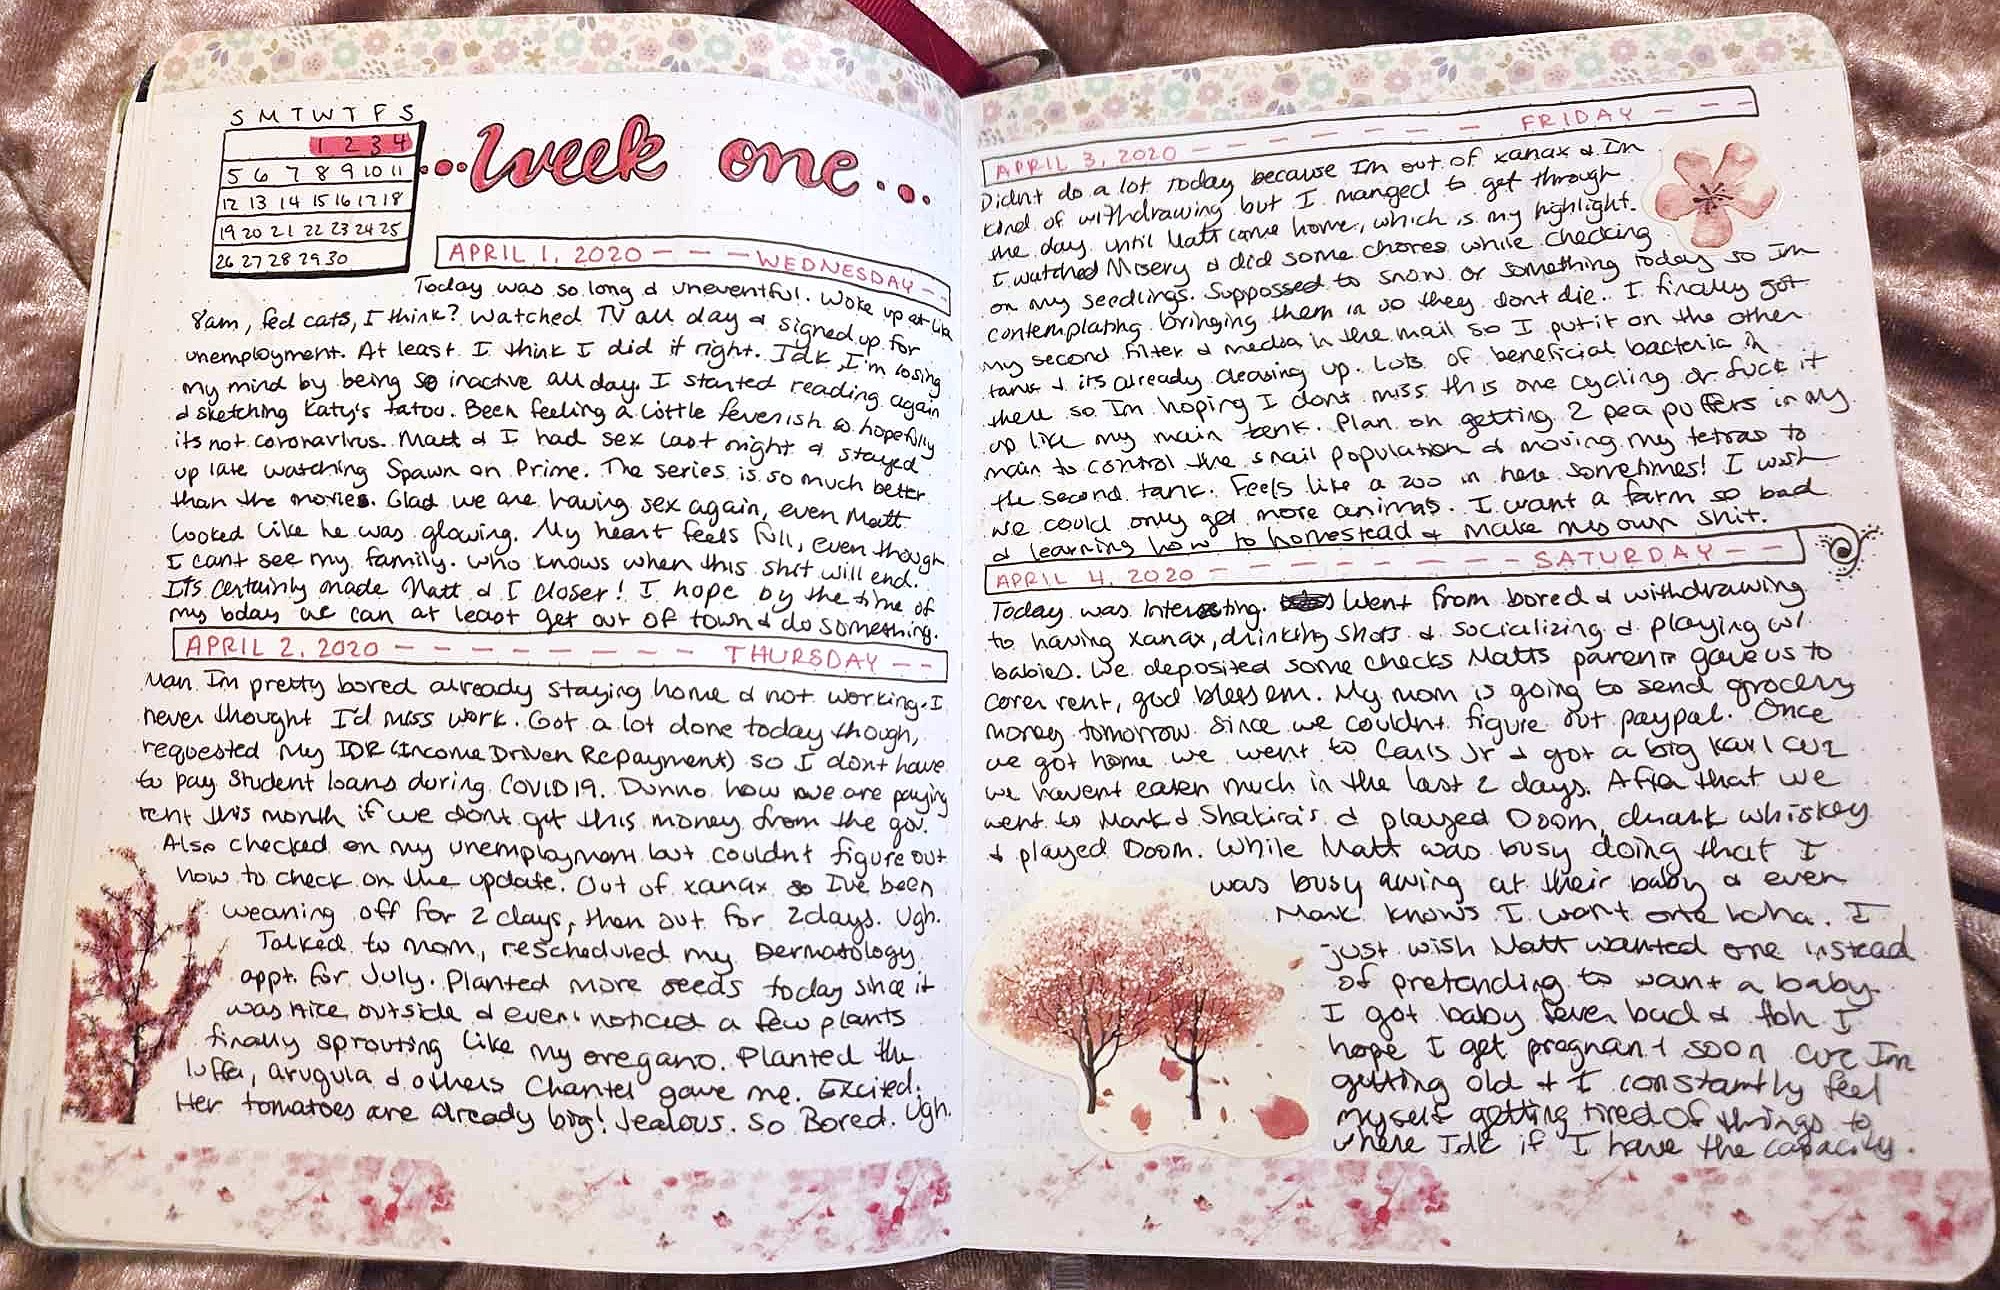 S M T W T F S
1 2 3 4
5 6 7 8 9 10 11
12 13 14 15 16 17 18
19 20 21 22 23 24 25
26 27 28 29 30
...week one...
APRIL 1, 2020 - - - WEDNESDAY - -
Today was so long & uneventful. Woke up at like
8am, fed cats, I think? Watched TV all day & signed up for
unemployment. At least I think I did it right. Idk, I'm losing
my mind by being so inactive all day. I started reading again
& sketching Katy's tatoo. Been feeling a little feverish so hopefully
its not coronavirus. Matt & I had sex last night & stayed
up late watching Spawn on Prime. The series is so much better
than the movies. Glad we are having sex again, even Matt
looked like he was glowing. My heart feels full, even though
I cant see my family. Who knows when this shit will end.
Its certainly made Matt & I closer! I hope by the time of
my bday we can at least get out of town & do something.
APRIL 2, 2020 - - - - - - - - - THURSDAY - -
Man Im pretty bored already staying home & not working. I
never thought I'd miss work. Got a lot done today though,
requested my IDR (Income Driven Repayment) so I dont have
to pay student loans during COVID19. Dunno how we are paying
rent this month if we dont get this money from the gov.
Also checked on my unemployment but couldnt figure out
how to check on the update. Out of xanax so I've been
weaning off for 2 days, then out for 2 days. Ugh.
Talked to mom, rescheduled my Dermatology
appt. for July. Planted more seeds today since it
was nice outside & even noticed a few plants
finally sprouting like my oregano. Planted the
luffa, arugula & others Chantel gave me. Excited.
Her tomatoes are already big! Jealous. So Bored. Ugh.
APRIL 3, 2020 - - - - - - - - - FRIDAY - - -
Didnt do a lot today because Im out of xanax & Im
kind of withdrawing but I manged to get through
the day until Matt came home, which is my highlight.
I watched Misery & did some chores while checking
on my seedlings. Suppossed to snow or something today so Im
contemplating bringing them in so they dont die. I finally got
my second filter & media in the mail so I put it on the other
tank & its already clearing up. Lots of beneficial bacteria in
there so Im hoping I dont miss this one cycling or fuck it
up like my main tank. Plan on getting 2 pea puffers in my
main to control the snail population & moving my tetras to
the second tank. Feels like a zoo in here sometimes! I wish
we could only get more animals. I want a farm so bad
& learning how to homestead & make my own shit.
APRIL 4, 2020 - - - - - - - - - SATURDAY - -
Today was interesting. Went from bored & withdrawing
to having xanax, drinking shots & socializing & playing w/
babies. We deposited some checks Matts parents gave us to
cover rent, god bless em. My mom is going to send grocery
money tomorrow since we couldnt figure out paypal. Once
we got home we went to Carls Jr & got a big Karl cuz
we havent eaten much in the last 2 days. After that we
went to Mark & Shakira's & played Doom, drank whiskey
& played Doom. While Matt was busy doing that I
was busy awing at their baby & even
Mark knows I want one haha. I
just wish Matt wanted one instead
of pretending to want a baby.
I got baby fever bad & tbh I
hope I get pregnant soon cuz Im
getting old & I constantly feel
myself getting tired of things to
where Idk if I have the capacity.